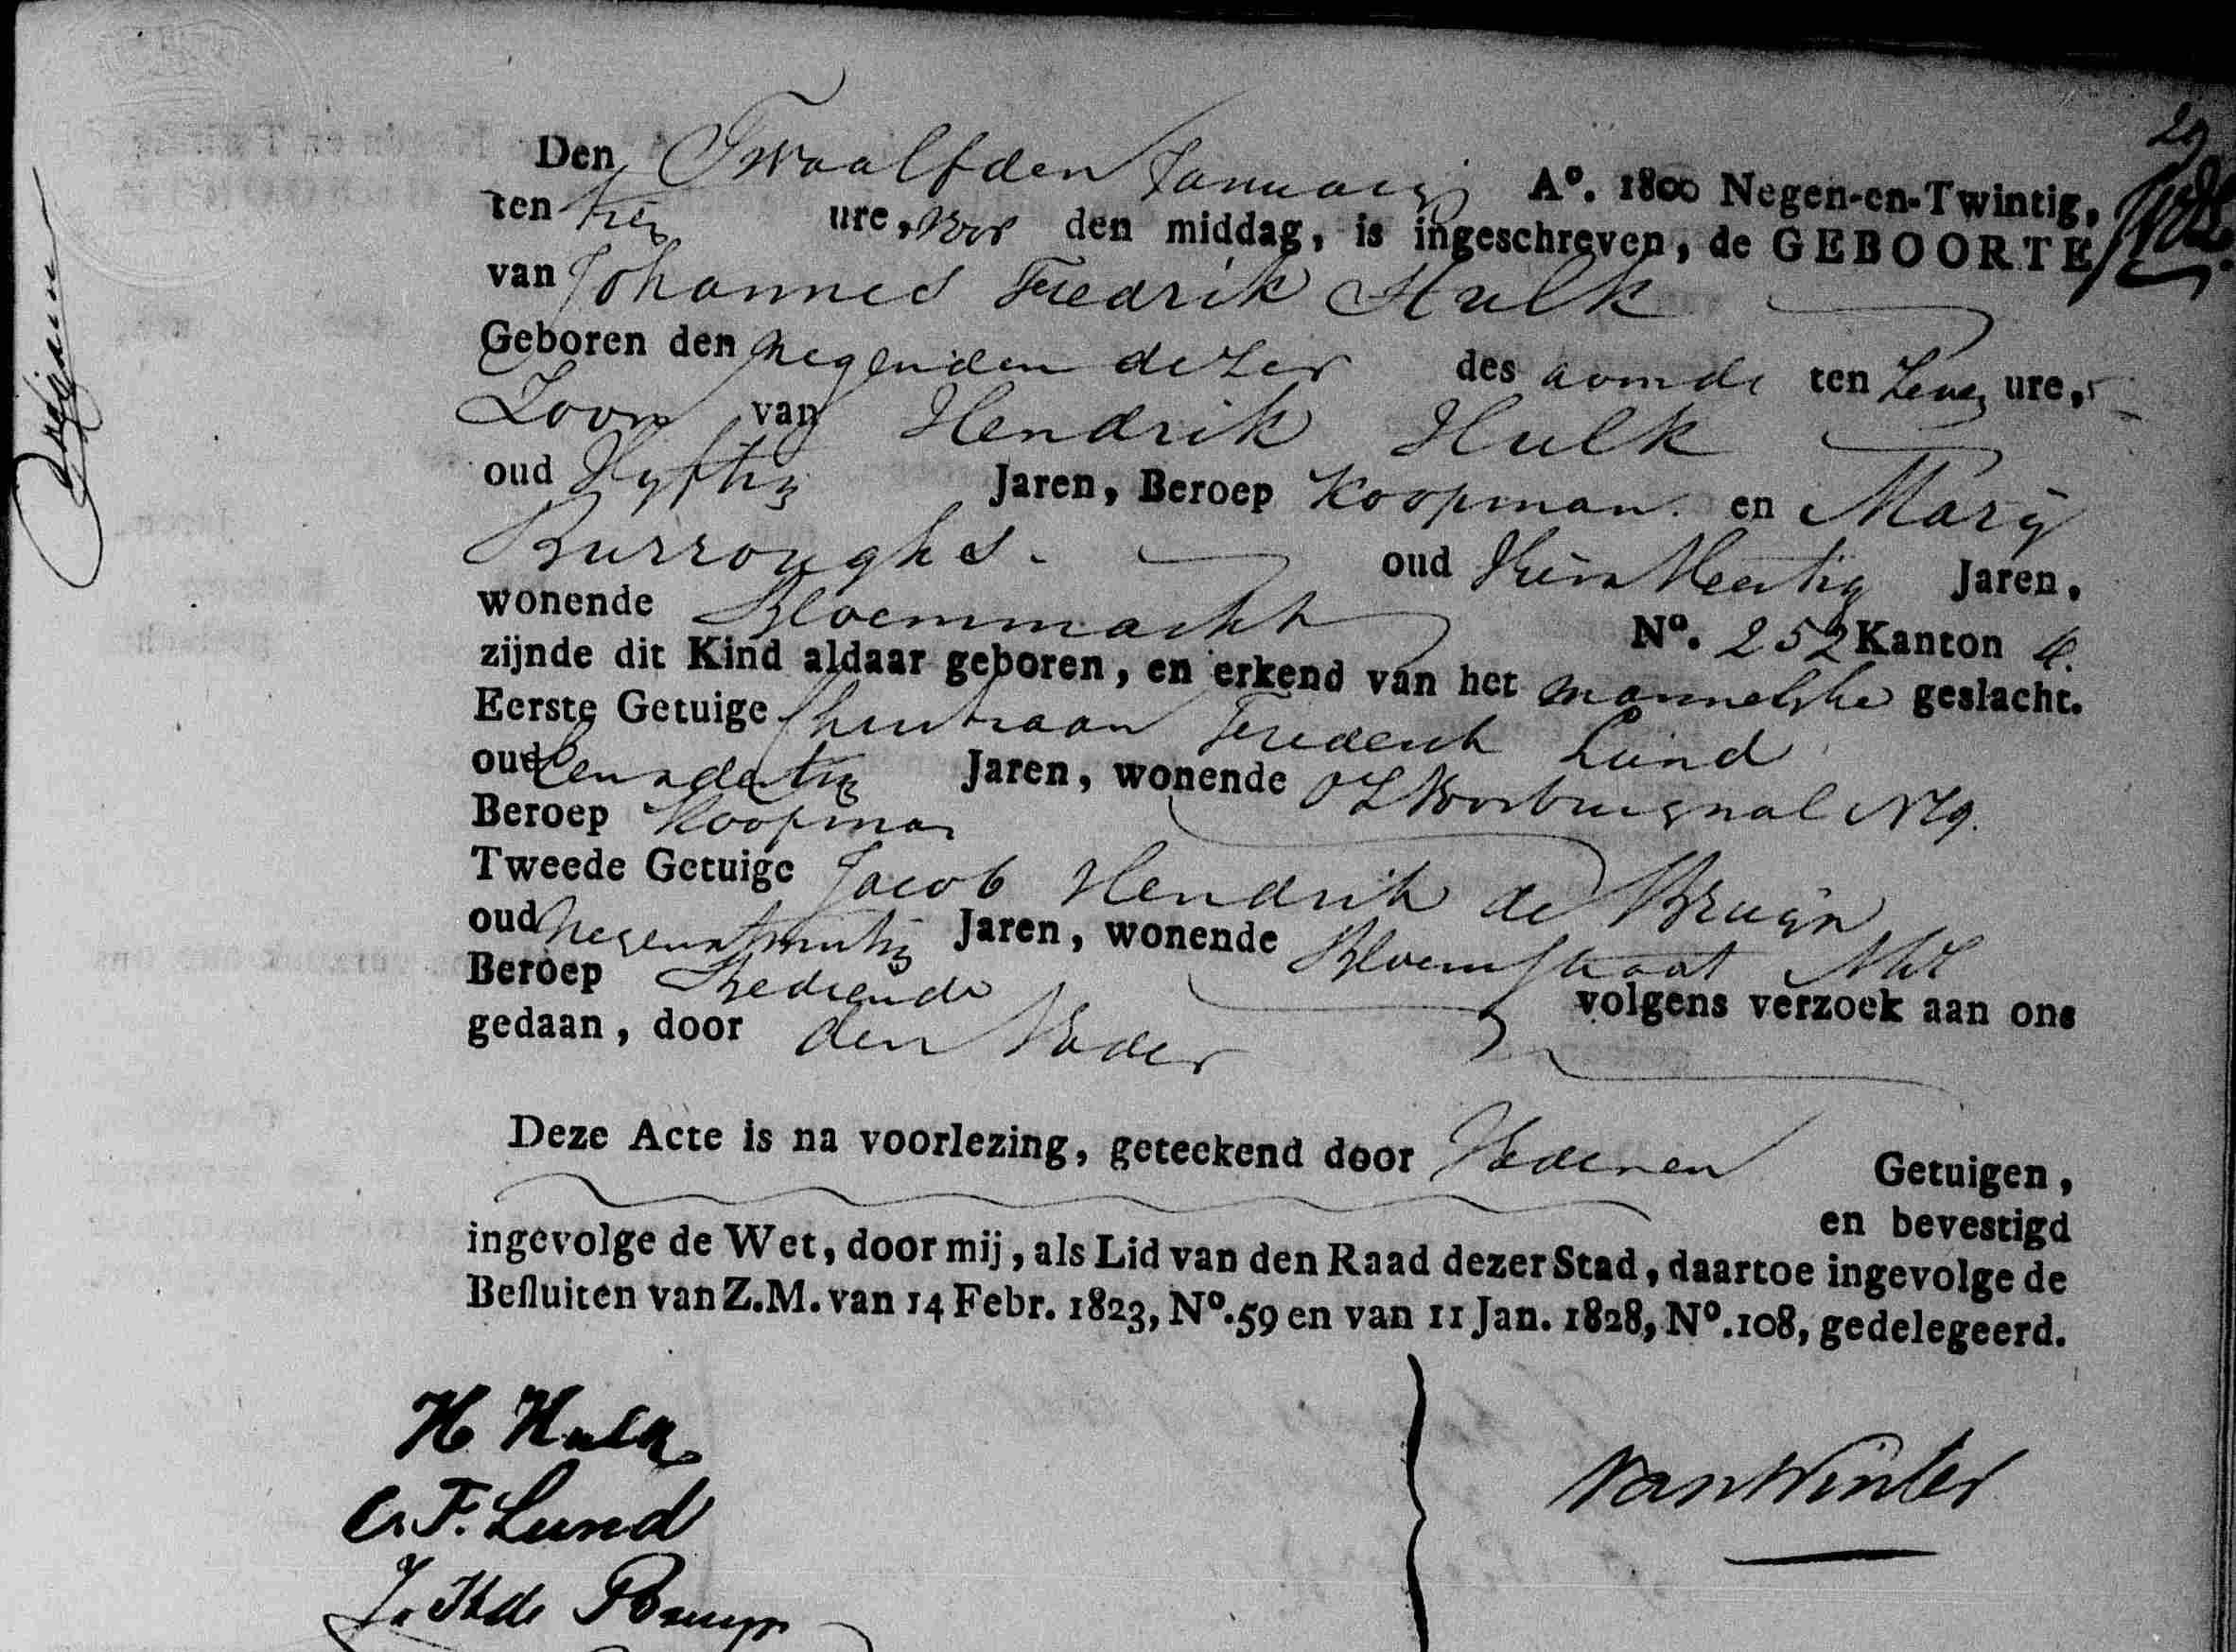 29
Den Twaalfden Januarij A°. 1800 Negen-en-Twintig,
ten tien ure, voor den middag, is ingeschreven, de GEBOORTE
van Johannes Fredrik Hulk
Geboren den negenden dezer des avonds ten zeven ure,
Zoon van Hendrik Hulk
oud Vyftig Jaren, Beroep Koopman en Marÿ
Burroughs. oud Jaren,
wonende Bloemmarkt N°. 252 Kanton 4.
zijnde dit Kind aldaar geboren, en erkend van het mannelyke geslacht.
Eerste Getuige Christiaan Frederik Lund
oud eenendertig Jaren, wonende OZ Voorburgwal N 19.
Beroep Koopman
Tweede Getuige Jacob Hendrik de Bruÿn
oud negenentwintig Jaren, wonende Bloemstraat
Beroep Bediende volgens verzoek aan ons
gedaan, door den Vader
Deze Acte is na voorlezing, geteekend door Vader en Getuigen,
en bevestigd
ingevolge de Wet, door mij, als Lid van den Raad dezer Stad, daartoe ingevolge de
Besluiten van Z.M. van 14 Febr. 1823, N°.59 en van 11 Jan. 1828, N°.108, gedelegeerd.
H Hulk
C. F. Lund
J. H de Bruyn
van Winter